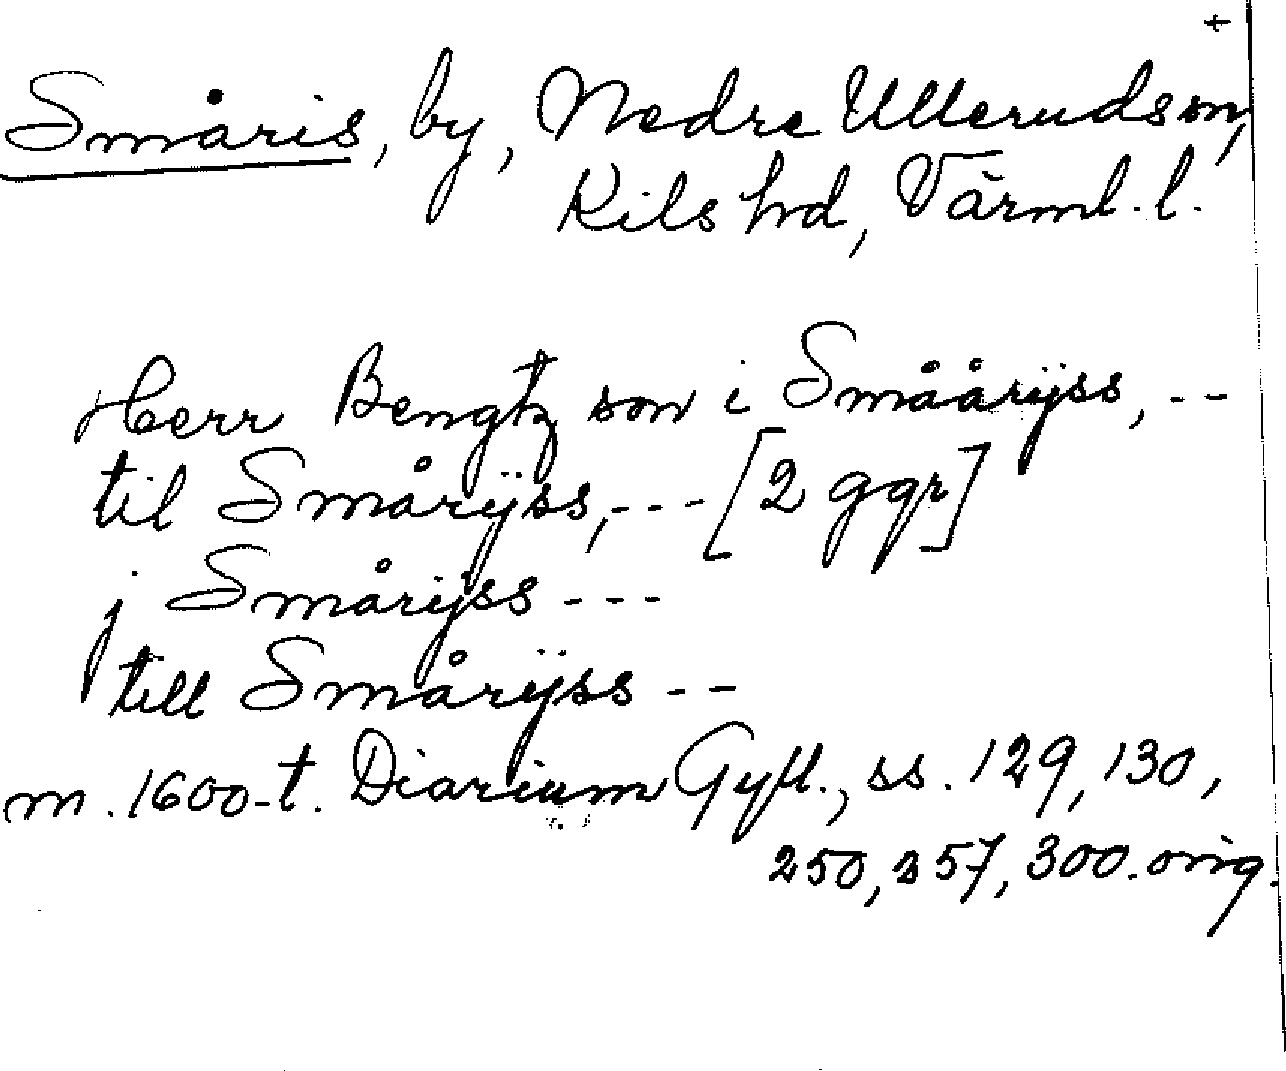 +
Småris, by, Nedre Ullerudssn,
Kils hd, Värml. l.
Herr Bengtz son i Smäårijss, --
til Smårÿss, --- [2 ggr]
j Smårijss ---
till Smårÿss --
m. 1600-t. Diarium Gyll., ss. 129, 130,
250, 257, 300. orig.